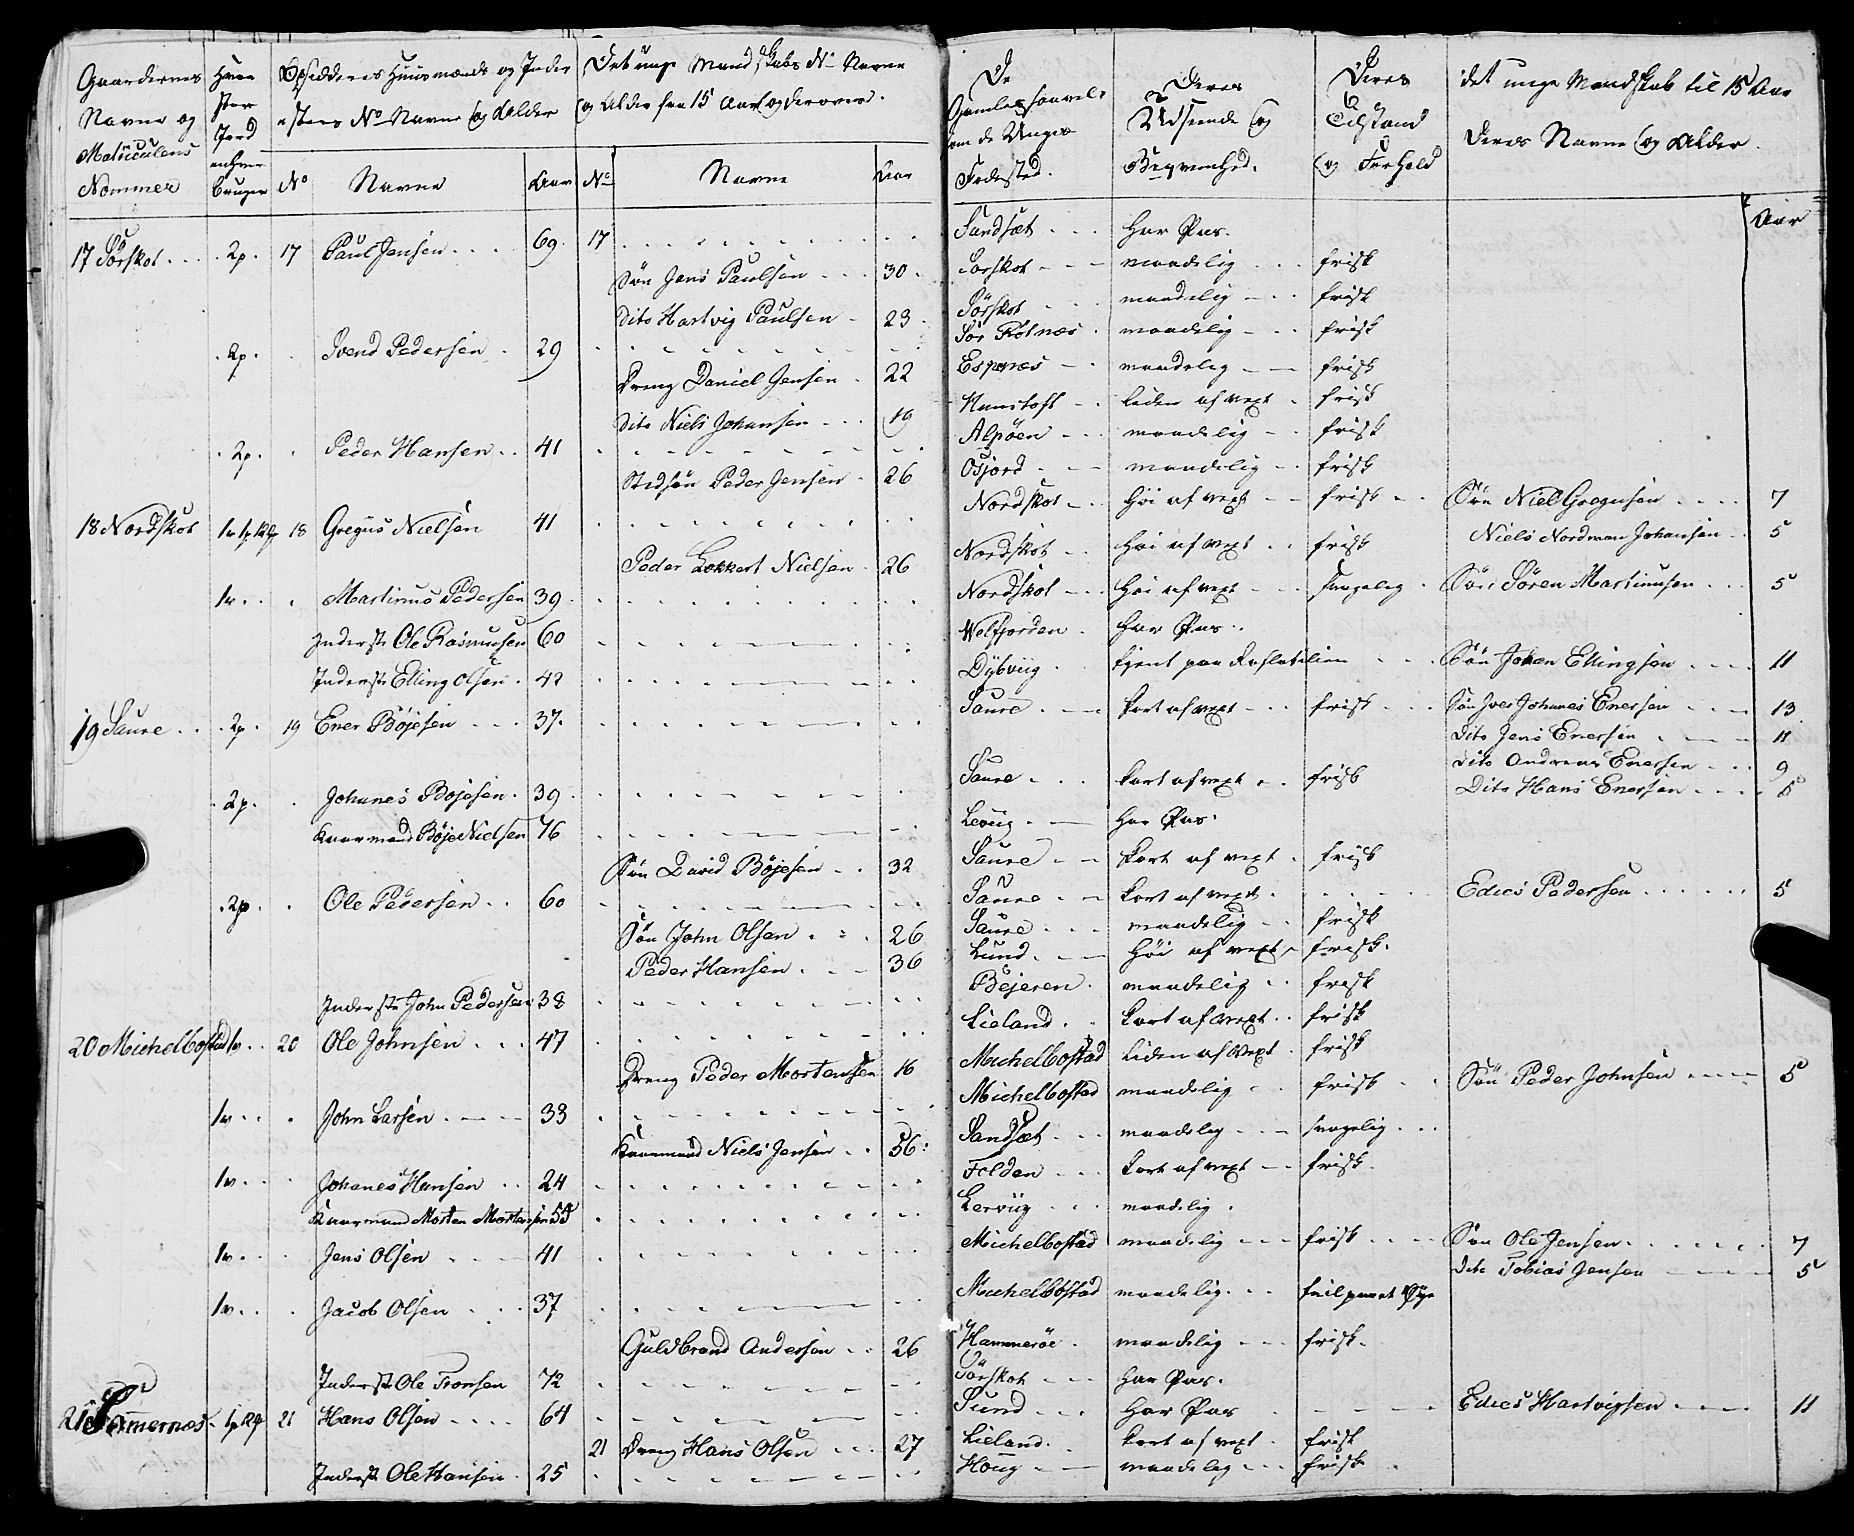 Gaardernes Navne og Matriculens Nommer
Hvor stor Jord enhver bruger
Opsidderes Huusmænds og Inder
esters No Navne og Alder
No Navne Aar
Det unge Mandskabs No Navne
og Alder fra 15 Aar og derover.
No Navne Aar
De Gamles saavel
som de Unges
Fødested.
Deres Udseende og
Beqvemhed.
Deres Tilstand
og Forhold
Det unge Mandskab til 15 Aar
Deres Navne og Alder.
Aar
17 Sørskot 2p. 17 Paul Jensen 69. 17 Sandsæt har Pas.
Søn Jens Paulsen 30. Sørskot maadelig frisk
Dito Hartvig Paulsen 23. Sørskot maadelig frisk
2p. Svend Pedersen 29 Sør Rotnæs maadelig frisk
Dreng Daniel Jensen 22 Espenæs maadelig frisk
Dito Niels Johansen 19 liden af vext frisk
2p. Peder Hansen 41 Alpøen maadelig frisk
Stedsøn Peder Jensen 26 Osjord maadelig frisk
18 Nordskot 18 Gregus Nielsen 41 Nordskot høi af vext frisk Søn Niel Gregusen 7
Niels Nordman Johansen 5
Peder Lokkert Nielsen 26 Nordskot høi af vext frisk
1w. Martinus Pedersen 39 Nordskot høi af vext svagelig Søn Søren Martinusen 5
Inderste Ole Rasmussen 60 Welfjorden har Pas.
Inderste Elling Olsen 42 Dybviig tjent paa Søn Johan Ellingsen 11
19 Saure 2p. 19 Ener Bøjesen 37. Saure kort af vext frisk Søn Iver Johanes Enersen 13
Dito Jens Enersen 11
Dito Andreas Enersen 9
Dito Hans Enersen 5
2p. Johanes Bojesen 39 Saure kort af vext frisk
Kaarmand Bøje Nielsen 76 Leviig har Pas.
Søn David Bøjesen 32 Saure kort af vext frisk
2p Ole Pedersen 60 Saure kort af vext. Edies Pedersen 5
Søn John Olsen 26 Saure maadelig frisk
Peder Hansen 36 Lund høi af vext frisk.
Inderste John Pedersen 38 Bejeren maadelig frisk
20 Michelbostad 1w. 20 Ole Johnsen 47 Lieland kort af vext frisk
Dreng Peder Mortensen 16 Michelbostad liden af Vext frisk
1w. John Larsen 33 Michelbostad maadelig frisk Søn Peder Johnsen 5
Kaarmand Niels Jensen 56. Sandsæt maadelig svagelig
1w. Johanes Hansen 24 Folden kort af vext frisk.
Kaarmand Morten Mortensen 55 Lerviig maadelig.
1w. Jens Olsen 41 Michelbostad maadelig frisk Søn Ole Jensen 7
Dito Tobias Jensen 5
1w. Jacob Olsen 37 Michelbostad maadelig. feil paa et Øye
Guldbrand Andersen 26 Hammerøe maadelig frisk.
Inderste Ole Tronsen 72 Sørskot har Pas.
21 21 Hans Olsen 64 Sund har Pas Edies Hartvigsen 11
21 Dreng Hans Olsen 27 Lieland kort af vext frisk
Inderste Ole Hansen 25 Houg maadelig frisk